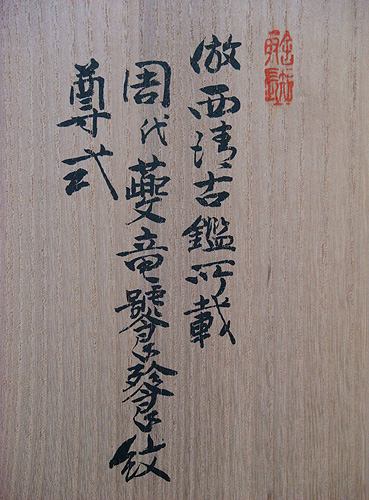 倣西清古鑑所載
周代夔竜饕餮紋
尊式